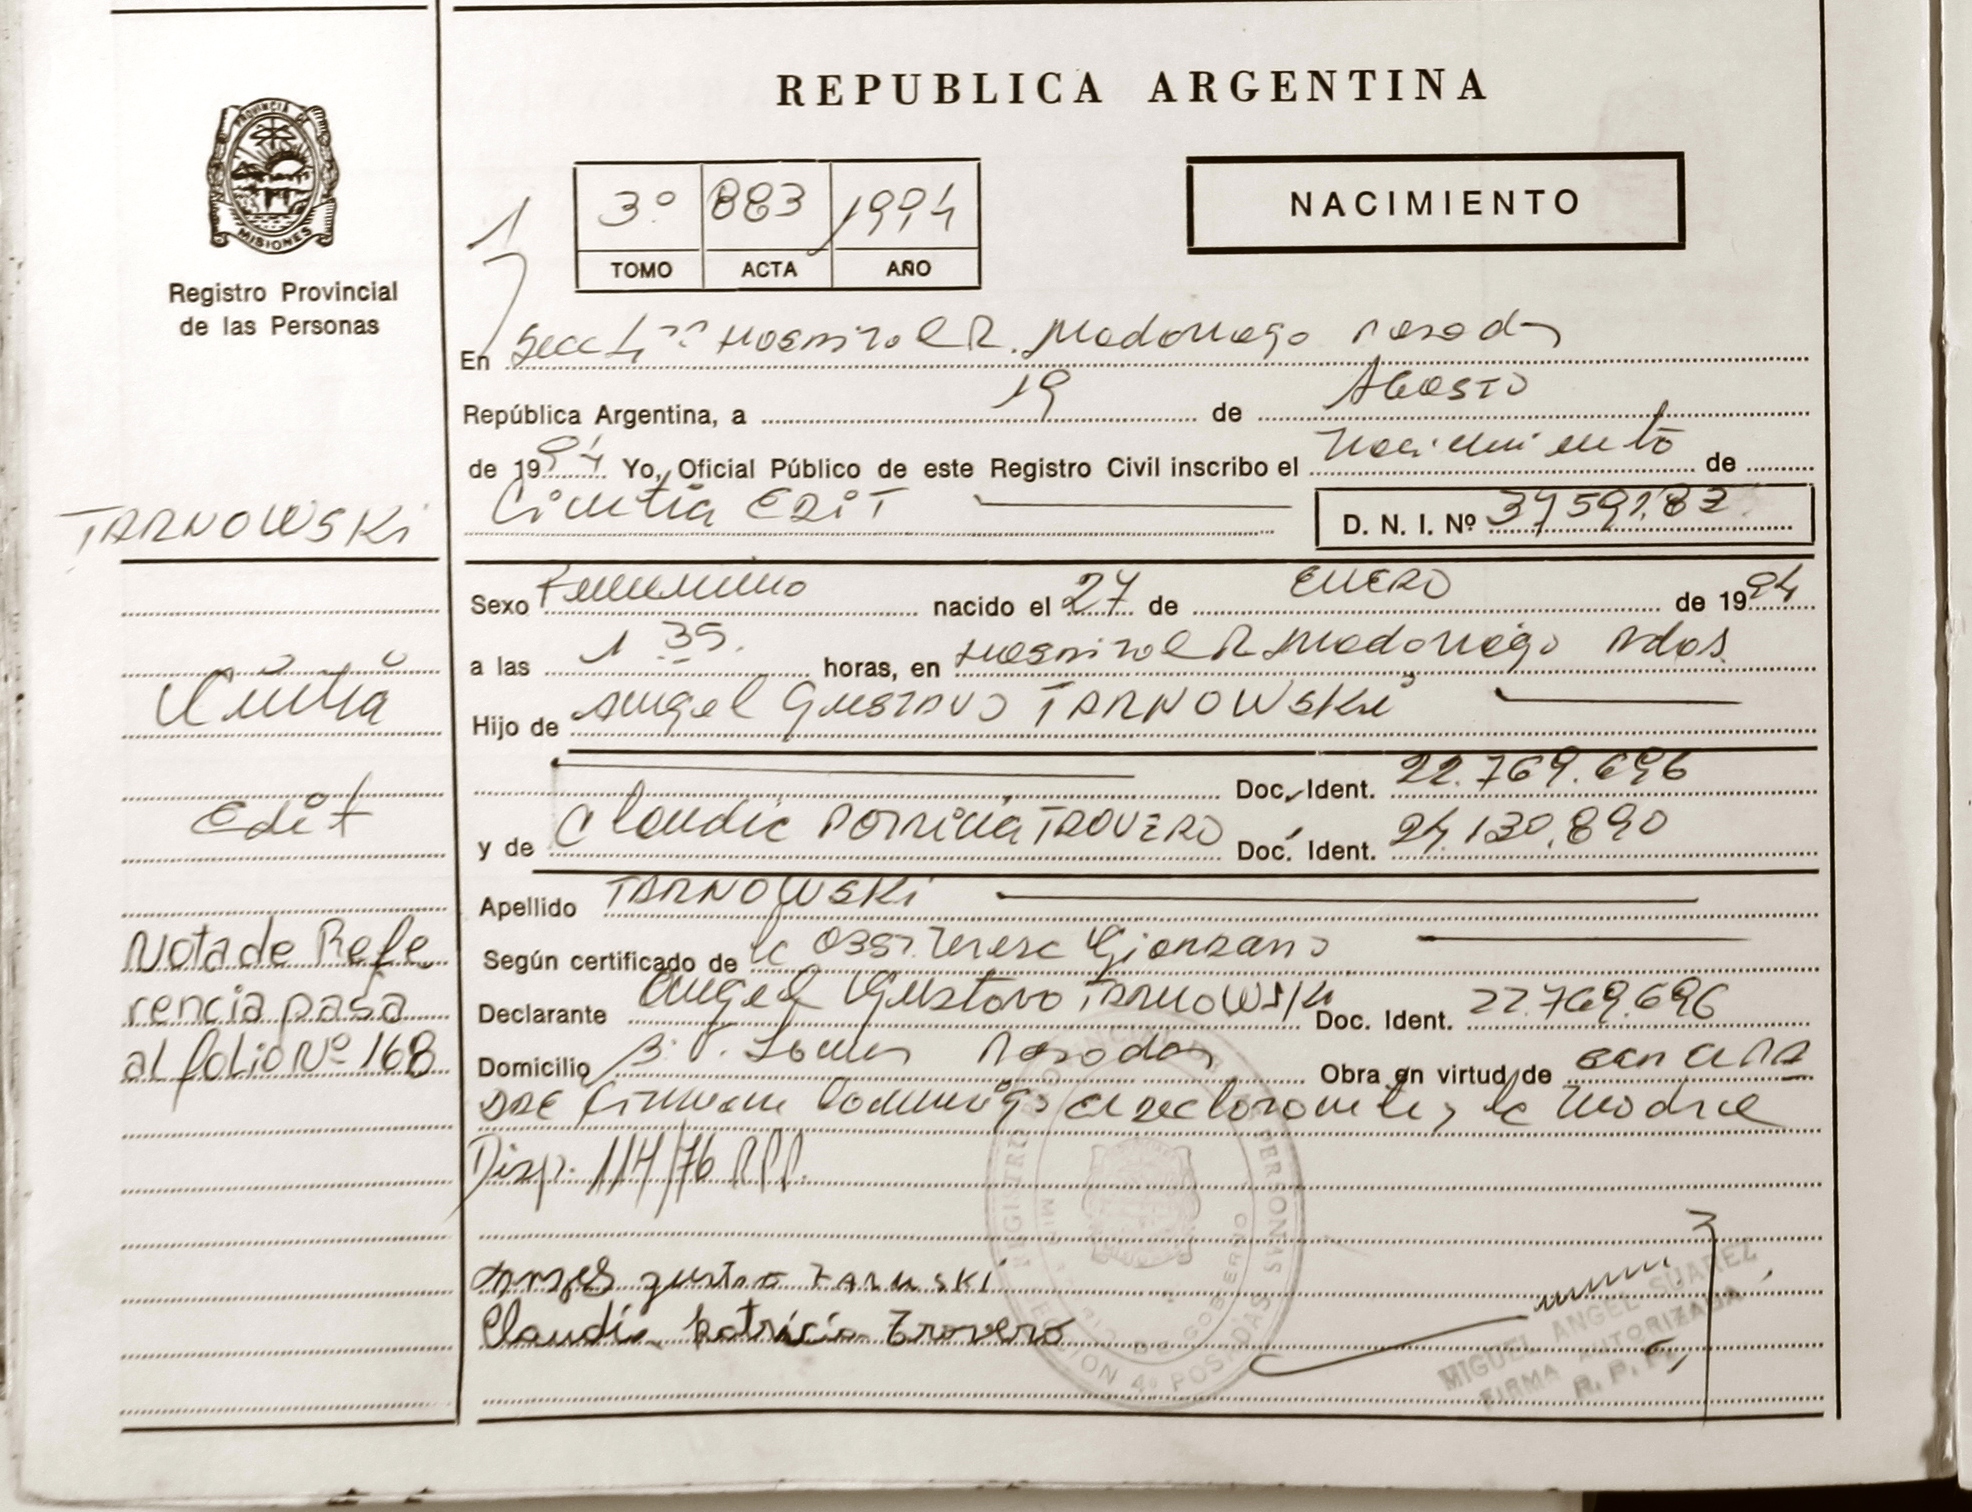 REPUBLICA ARGENTINA
PROVINCIA DE
MISIONES
Registro Provincial
de las Personas
3º 883 1994
TOMO ACTA AÑO
NACIMIENTO
En Secc 4ª Hospital R. Madariaga Posadas
República Argentina, a 19 de Agosto
de 1994 Yo, Oficial Público de este Registro Civil inscribo el Nacimiento de
Cintia EDIT
D. N. I. Nº
TARNOWSKI
Cintia
Edit
Nota de Refe
rencia pasa
al folio Nº 168
Sexo Femenino nacido el 27 de ENERO de 1994
a las 1 35 horas, en Hospital R Madariaga Pdas
Hijo de Angel Gustavo TARNOWSKi
Doc. Ident. 22.769.696
y de Claudia Patricia TROVERO Doc. Ident. 24.130.890
Apellido TARNOWSKi
Según certificado de la Obst. Teresa
Declarante Angel Gustavo TARNOWSKi Doc. Ident. 22.769.696
Domicilio Posadas Obra en virtud de
firman conmigo el declarante y la Madre
Disp. 114/76 RPP.
Angel gustavo TARNUSKi
Claudia patricia Trovero
MIGUEL ANGEL SUAREZ
FIRMA AUTORIZADA
R. P. P.